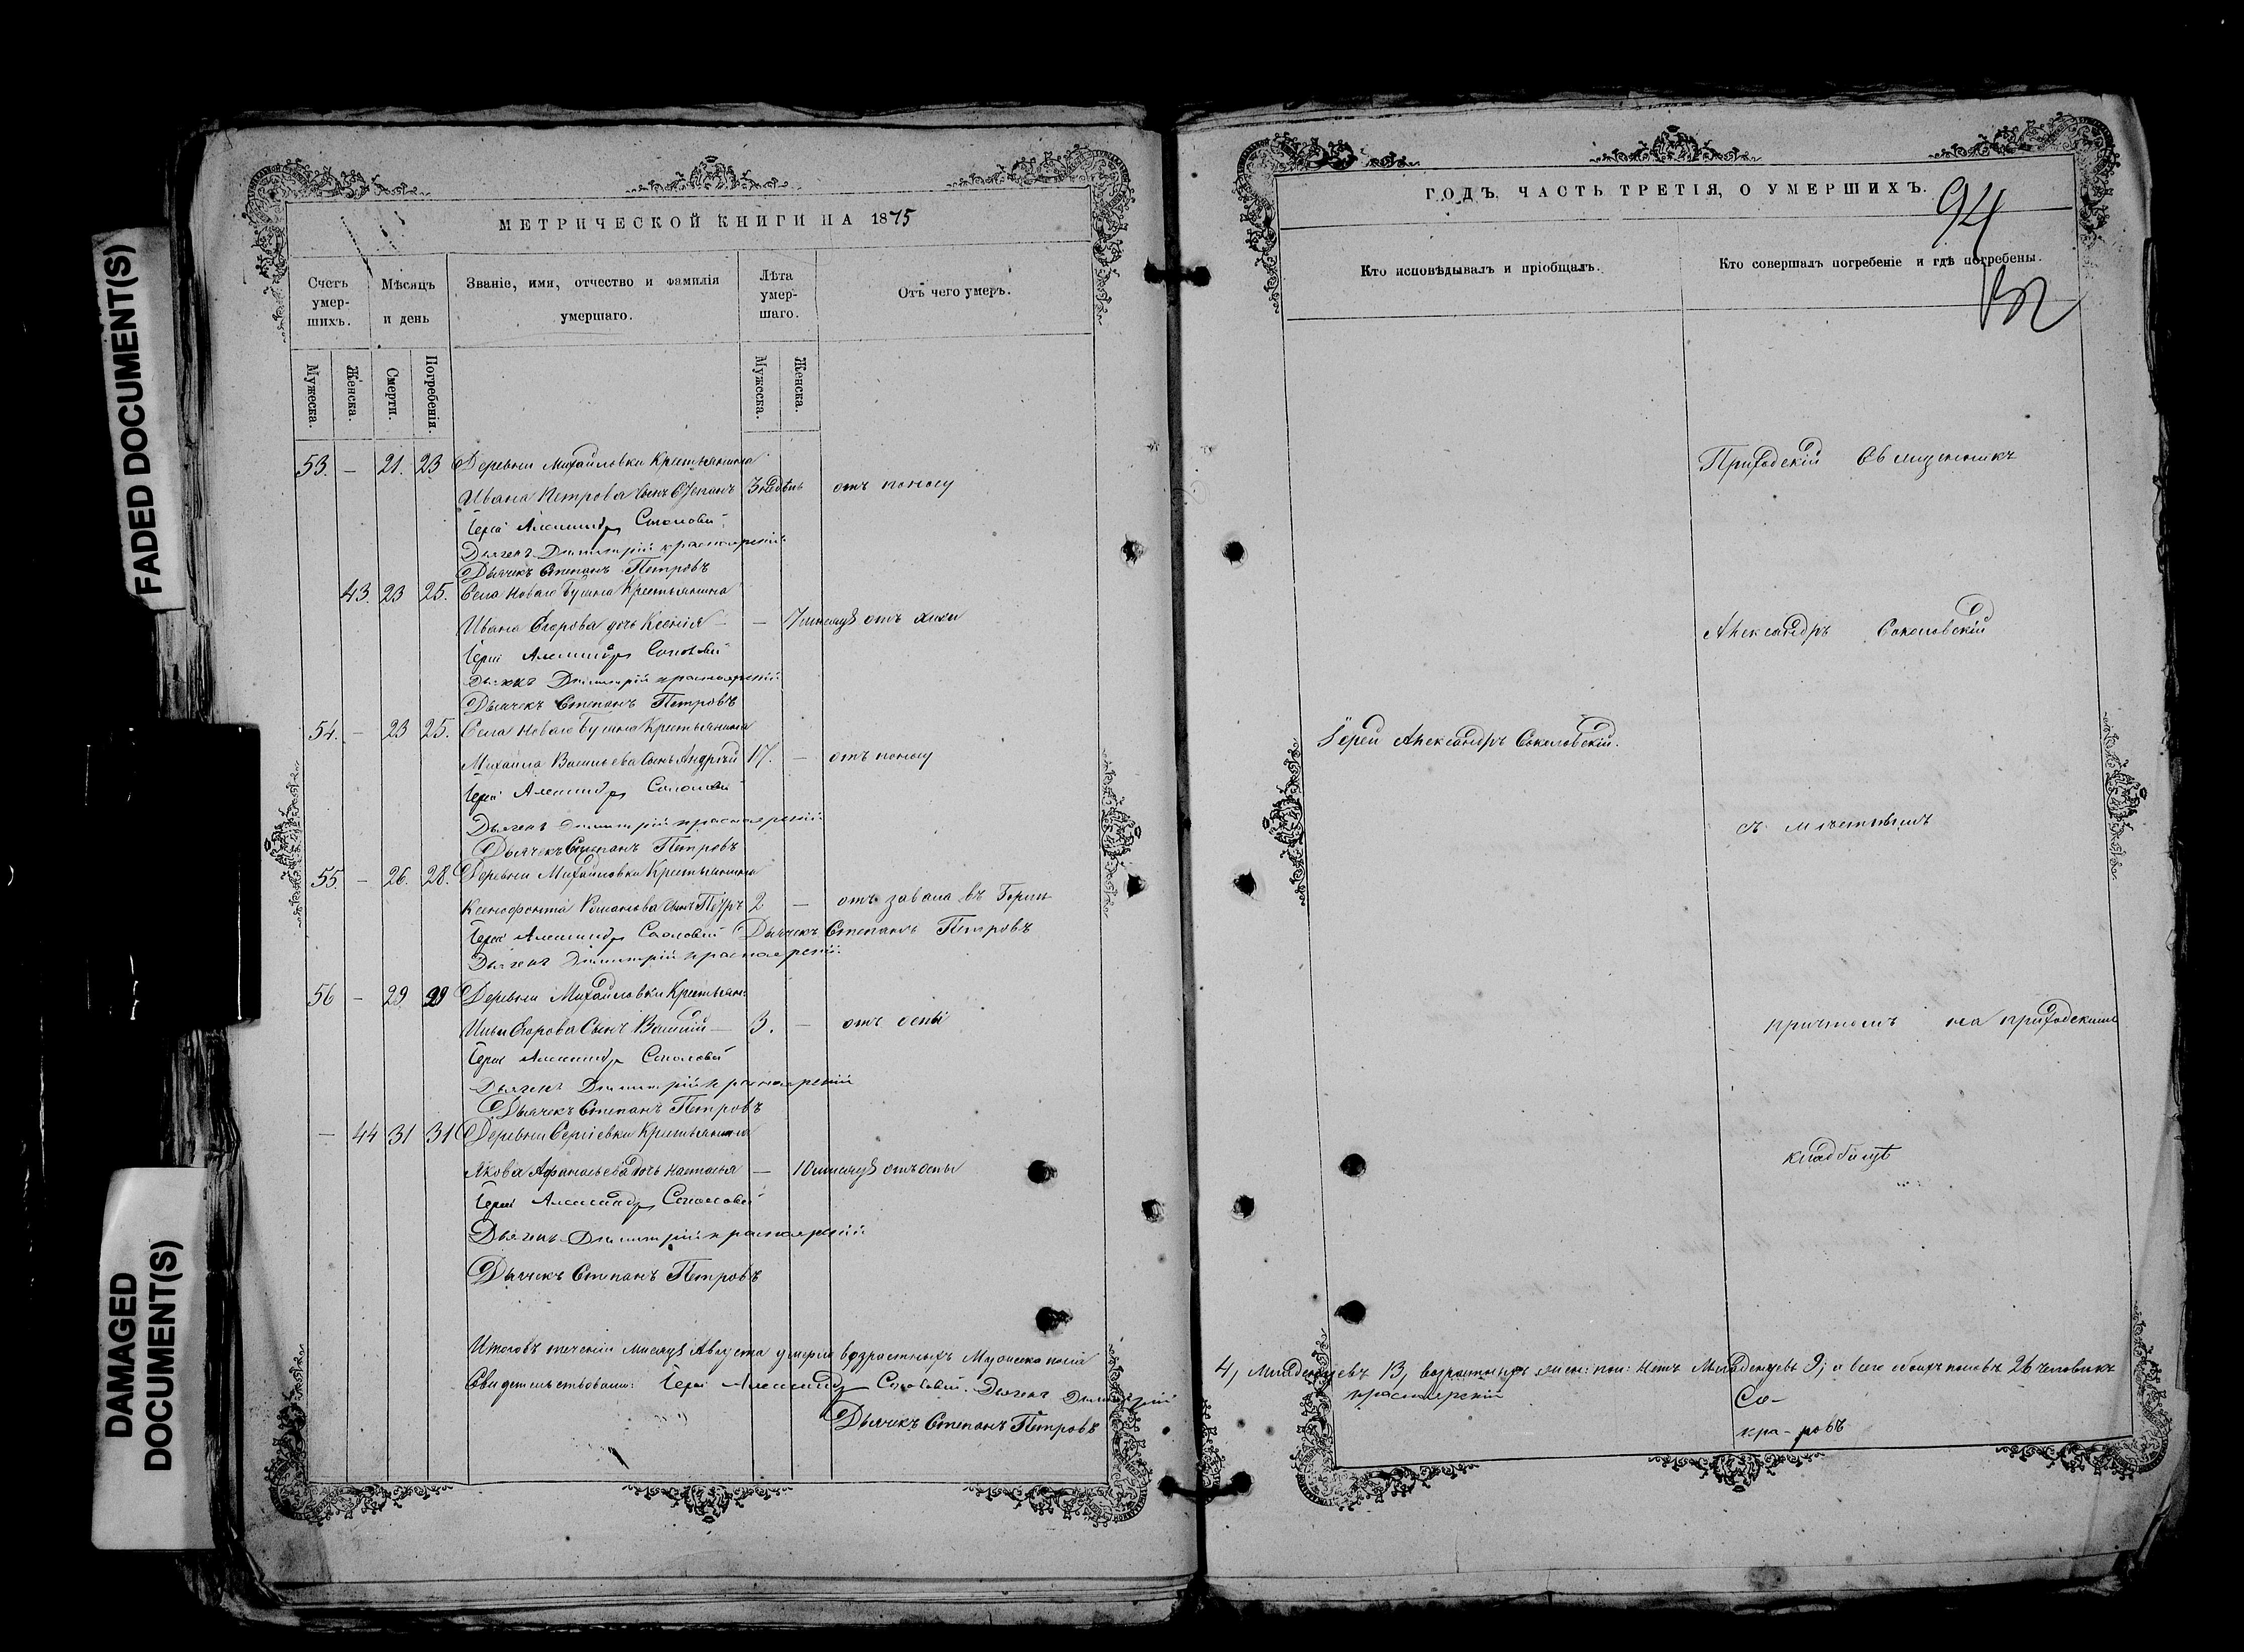 FADED DOCUMENT(S)
DAMAGED
DOCUMENT(S)
МЕТРИЧЕСКОЙ КНИГИ НА 1875
Счетъ умер-шихъ.
Мѣсяцъ и день
Званіе, имя, отчество и фамилія умершаго.
Лѣта умер-шаго.
Отъ чего умеръ.
Мужеска.
Женска.
Смерти.
Погребенія.
Мужеска.
Женска.
53. — 21. 23 Деревни Михайловки Крестьянина
Ивана Петрова сынъ Степанъ 3 недѣль отъ поносу
Іерей Александръ Соколовскій
Дьяконъ Димитрій Красноярскій
Дьячекъ Степанъ Петровъ
43. 23 25. Села Новаго Буяна Крестьянина
Ивана Егорова дочь Ксенія — — 7 мѣсяцѣ отъ
Іерей Александръ Соколовскій
Дьяконъ Димитрій Красноярскій
Дьячекъ Степанъ Петровъ
54. — 23 25. Села Новаго Буяна Крестьянина
Михаила Васильева сынъ Андрей 17. — отъ поносу
Іерей Александръ Соколовскій
Дьяконъ Димитрій Красноярскій
Дьячекъ Степанъ Петровъ
55 — 26. 28. Деревни Михайловки Крестьянина
Ксенофонта Романова сынъ Петръ 2 — отъ завала въ Горлѣ
Іерей Александръ Соколовскій Дьячекъ Степанъ Петровъ
Дьяконъ Димитрій Красноярскій
56 — 29 29 Деревни Михайловки Крестьян:
Ильи Егорова Сынъ Василій — 3. — отъ оспы
Іерей Александръ Соколовскій
Дьяконъ Димитрій Красноярскій
Дьячекъ Степанъ Петровъ
— 44 31 31 Деревни Сергіевки Крестьянина
Якова Афанасьева дочь Настасья — 10 мѣсяцѣ отъ оспы
Іерей Александръ Соколовскій
Дьяконъ Димитрій Красноярскій
Дьячекъ Степанъ Петровъ
Итого въ теченіи мѣсяцѣ Августа умерло возрастныхъ Мужеска пола
Свидетельствовали: Іерей Александръ Соколовскій. Дьяконъ Димитрій
Дьячекъ Степанъ Петровъ
ГОДЪ, ЧАСТЬ ТРЕТІЯ, О УМЕРШИХЪ.
94
Кто исповѣдывалъ и пріобщалъ.
Кто совершалъ погребеніе и гдѣ погребены.
Приходскій Священникъ
Александръ Соколовскій
Іерей Александръ Соколовскій.
съ мѣстнымъ
причтомъ на приходскимъ
кладбищѣ
4, Младенцевъ 13, возрастныхъ жен: пол: нетъ Младенцевъ 9; а всего обоихъ половъ 26 человѣкъ
Красноярскій
Со-
кра-ровъ